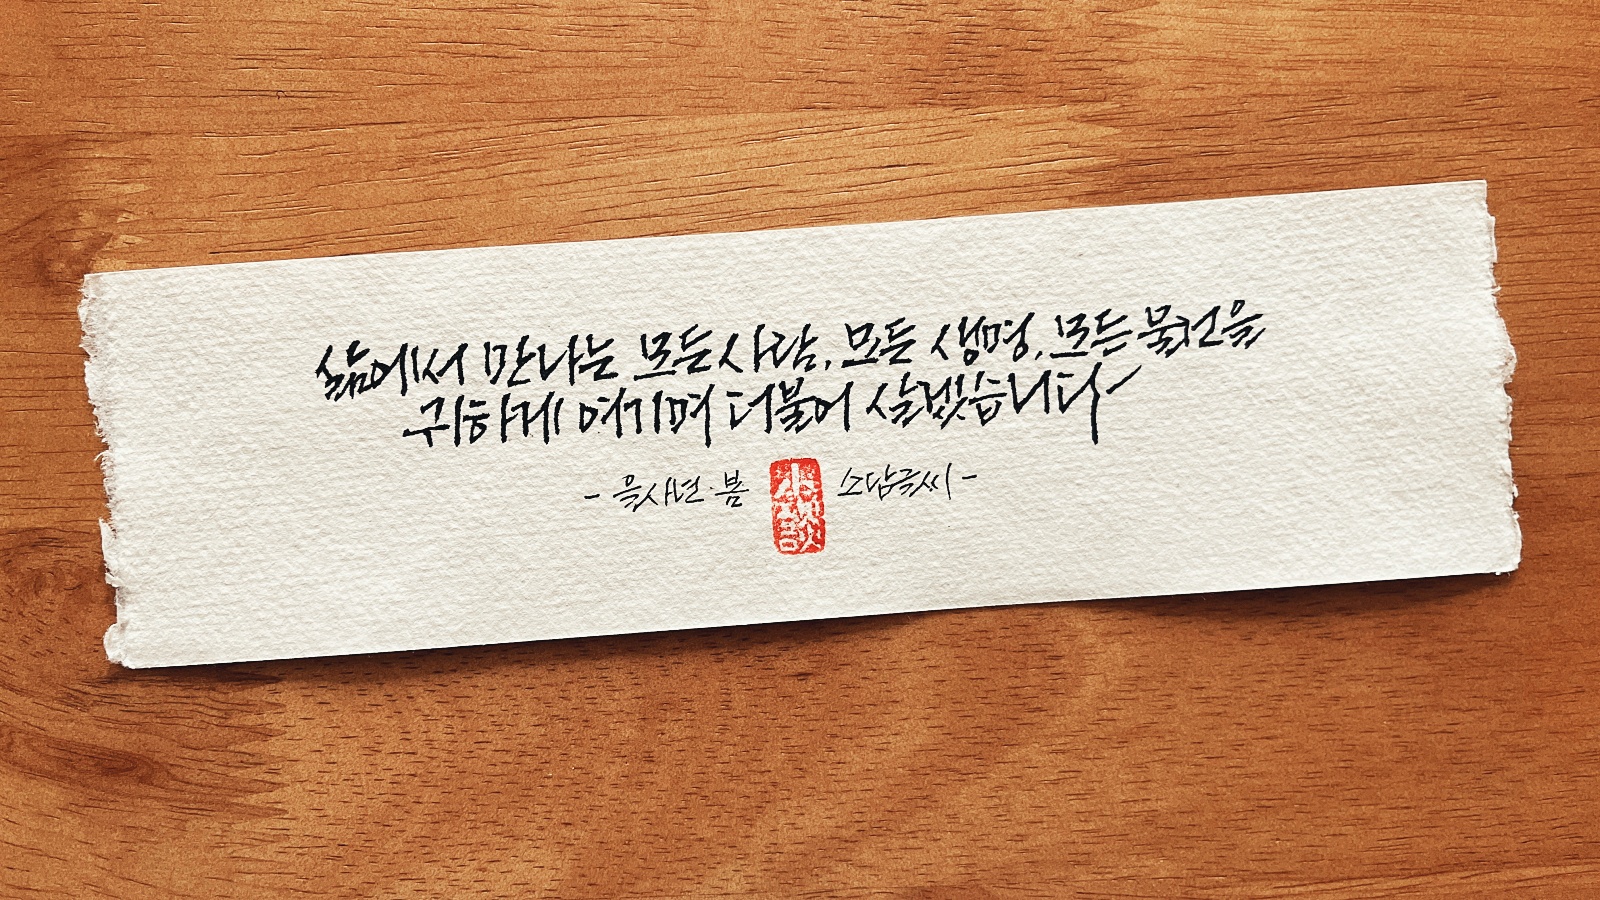 삶에서 만나는 모든 사람, 모든 생명, 모든 물건을
귀하게 여기며 더불어 살겠습니다
- 을사년·봄 小談 소담글씨 -